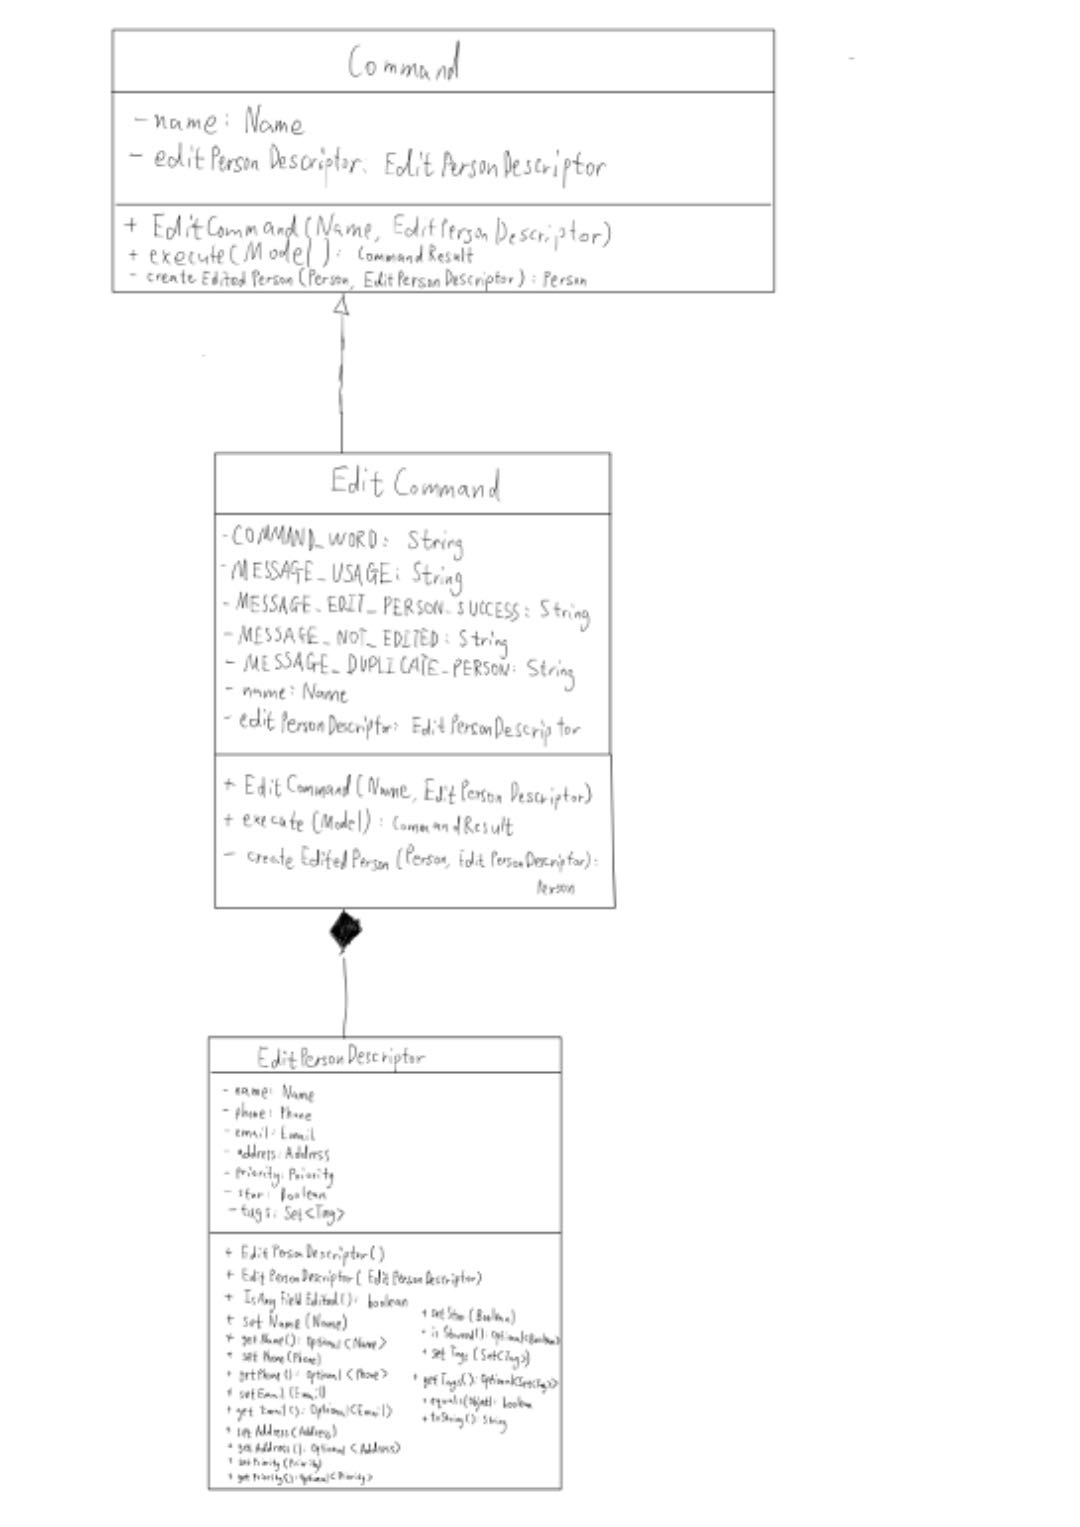 Command
- name: Name
- editPersonDescriptor: EditPersonDescriptor
+ EditCommand(Name, EditPersonDescriptor)
+ execute(Model): CommandResult
- createEditedPerson(Person, EditPersonDescriptor): Person
EditCommand
- COMMAND_WORD: String
- MESSAGE_USAGE: String
- MESSAGE_EDIT_PERSON_SUCCESS: String
- MESSAGE_NOT_EDITED: String
- MESSAGE_DUPLICATE_PERSON: String
- name: Name
- editPersonDescriptor: EditPersonDescriptor
+ EditCommand(Name, EditPersonDescriptor)
+ execute(Model): CommandResult
- createEditedPerson(Person, EditPersonDescriptor):
Person
EditPersonDescriptor
- name: Name
- phone: Phone
- email: Email
- address: Address
- priority: Priority
- star: Boolean
- tags: Set<Tag>
+ EditPersonDescriptor()
+ EditPersonDescriptor(EditPersonDescriptor)
+ IsAnyFieldEdited(): boolean
+ setName(Name)
+ getName(): Optional<Name>
+ setPhone(Phone)
+ getPhone(): Optional<Phone>
+ setEmail(Email)
+ getEmail(): Optional<Email>
+ setAddress(Address)
+ getAddress(): Optional<Address>
+ setPriority(Priority)
+ getPriority(): Optional<Priority>
+ setStar(Boolean)
+ isStarred(): Optional<Boolean>
+ setTags(Set<Tag>)
+ getTags(): Optional<Set<Tag>>
+ equals(Object): boolean
+ toString(): String